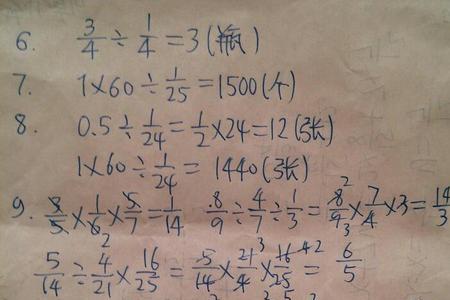 6. 3/4 ÷ 1/4 = 3 (瓶)
7. 1×60 ÷ 1/25 = 1500 (个)
8. 0.5 ÷ 1/24 = 1/2 × 24 = 12 (张)
1×60 ÷ 1/24 = 1440 (张)
9. 3/5 × 1/6 × 5/7 = 1/14 8/9 ÷ 4/7 ÷ 1/3 = 8/9 × 7/4 × 3 = 14/3
5/14 ÷ 4/21 × 16/25 = 5/14 × 21/4 × 16/25 = 6/5